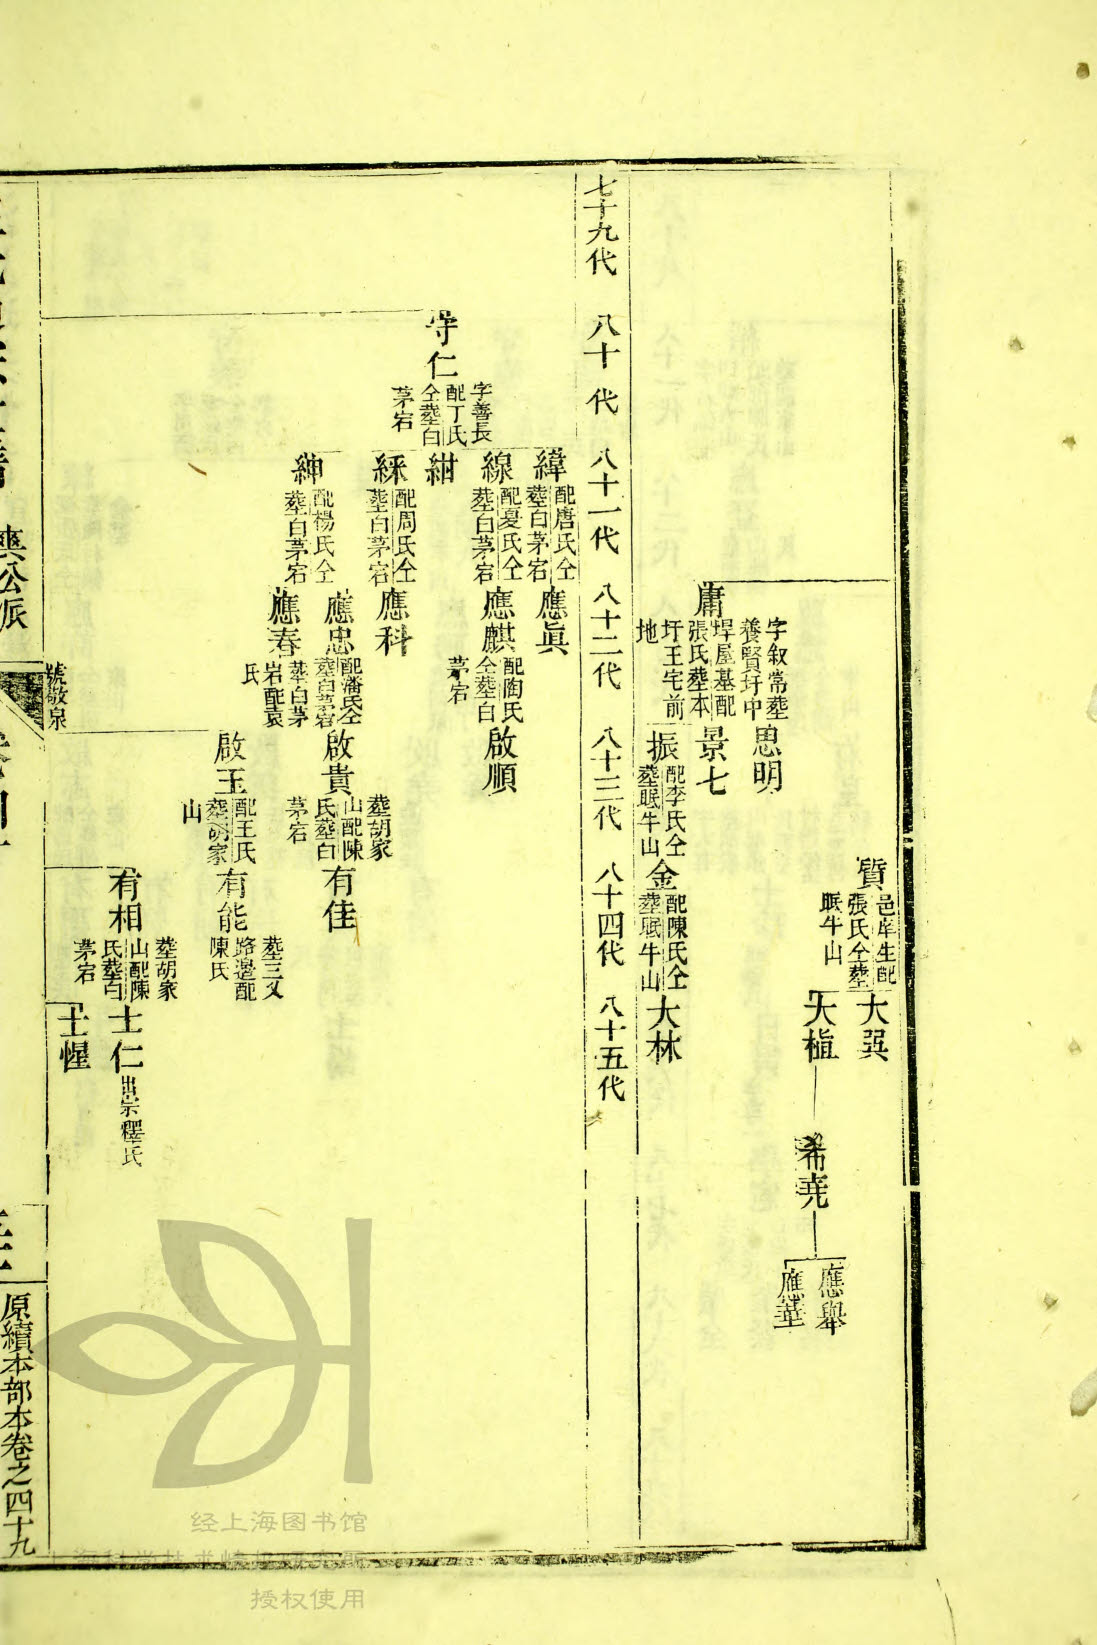 質
邑庠生配
張氏仝塟
眠牛山
大巽
大植
希堯
應舉
應華
庸
字叙常塟
養賢圩中
埕屋基配
張氏塟本
圩王宅前
地
思明
景七
振
配李氏仝
塟眠牛山
金
配陳氏仝
塟眠牛山
大林
七十九代
八十代
八十一代
八十二代
八十三代
八十四代
八十五代
守仁
字善長
配丁氏
仝塟白
茅宕
緯
配唐氏仝
塟白茅宕
應眞
線
配夏氏仝
塟白茅宕
應麒
配陶氏
仝塟白
茅宕
啟順
紺
綵
配周氏仝
塟白茅宕
應科
紳
配楊氏仝
塟白茅宕
應忠
配潘氏仝
塟白茅宕
啟貴
塟胡家
山配陳
氏塟白
茅宕
有佳
應春
塟白茅
岩配袁
氏
啟玉
配王氏
塟胡家
山
有能
塟三义
路邊配
陳氏
有相
塟胡家
山配陳
氏塟白
茅宕
士仁
出宗釋氏
士惺
號敬泉
爽公派
原續本部本卷之四十九
经上海图书馆
授权使用